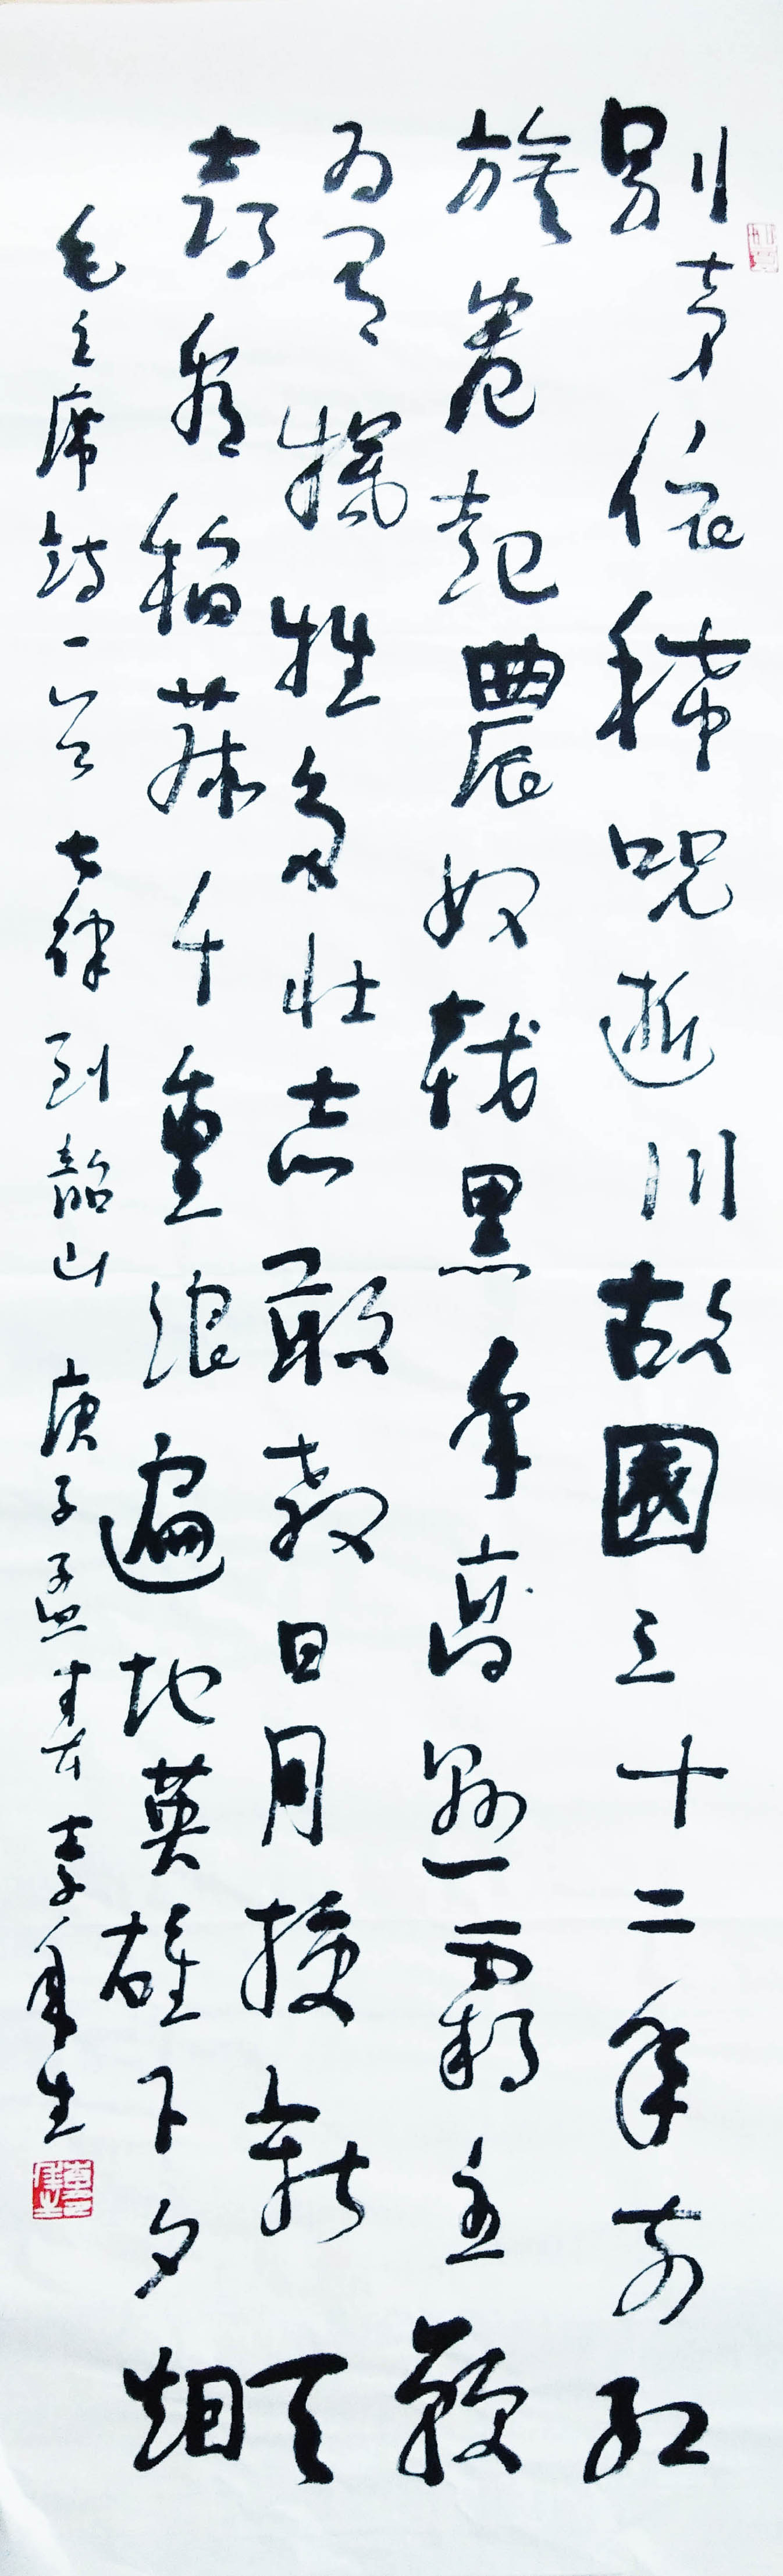 别夢依稀咒逝川故園三十二年前红
旗卷起農奴戟黑手高懸霸主鞭
为有犠牲多壮志敢教日月换新天
喜看稻菽千重浪遍地英雄下夕烟
毛主席詩一首 七律 到韶山 庚子孟春 李生